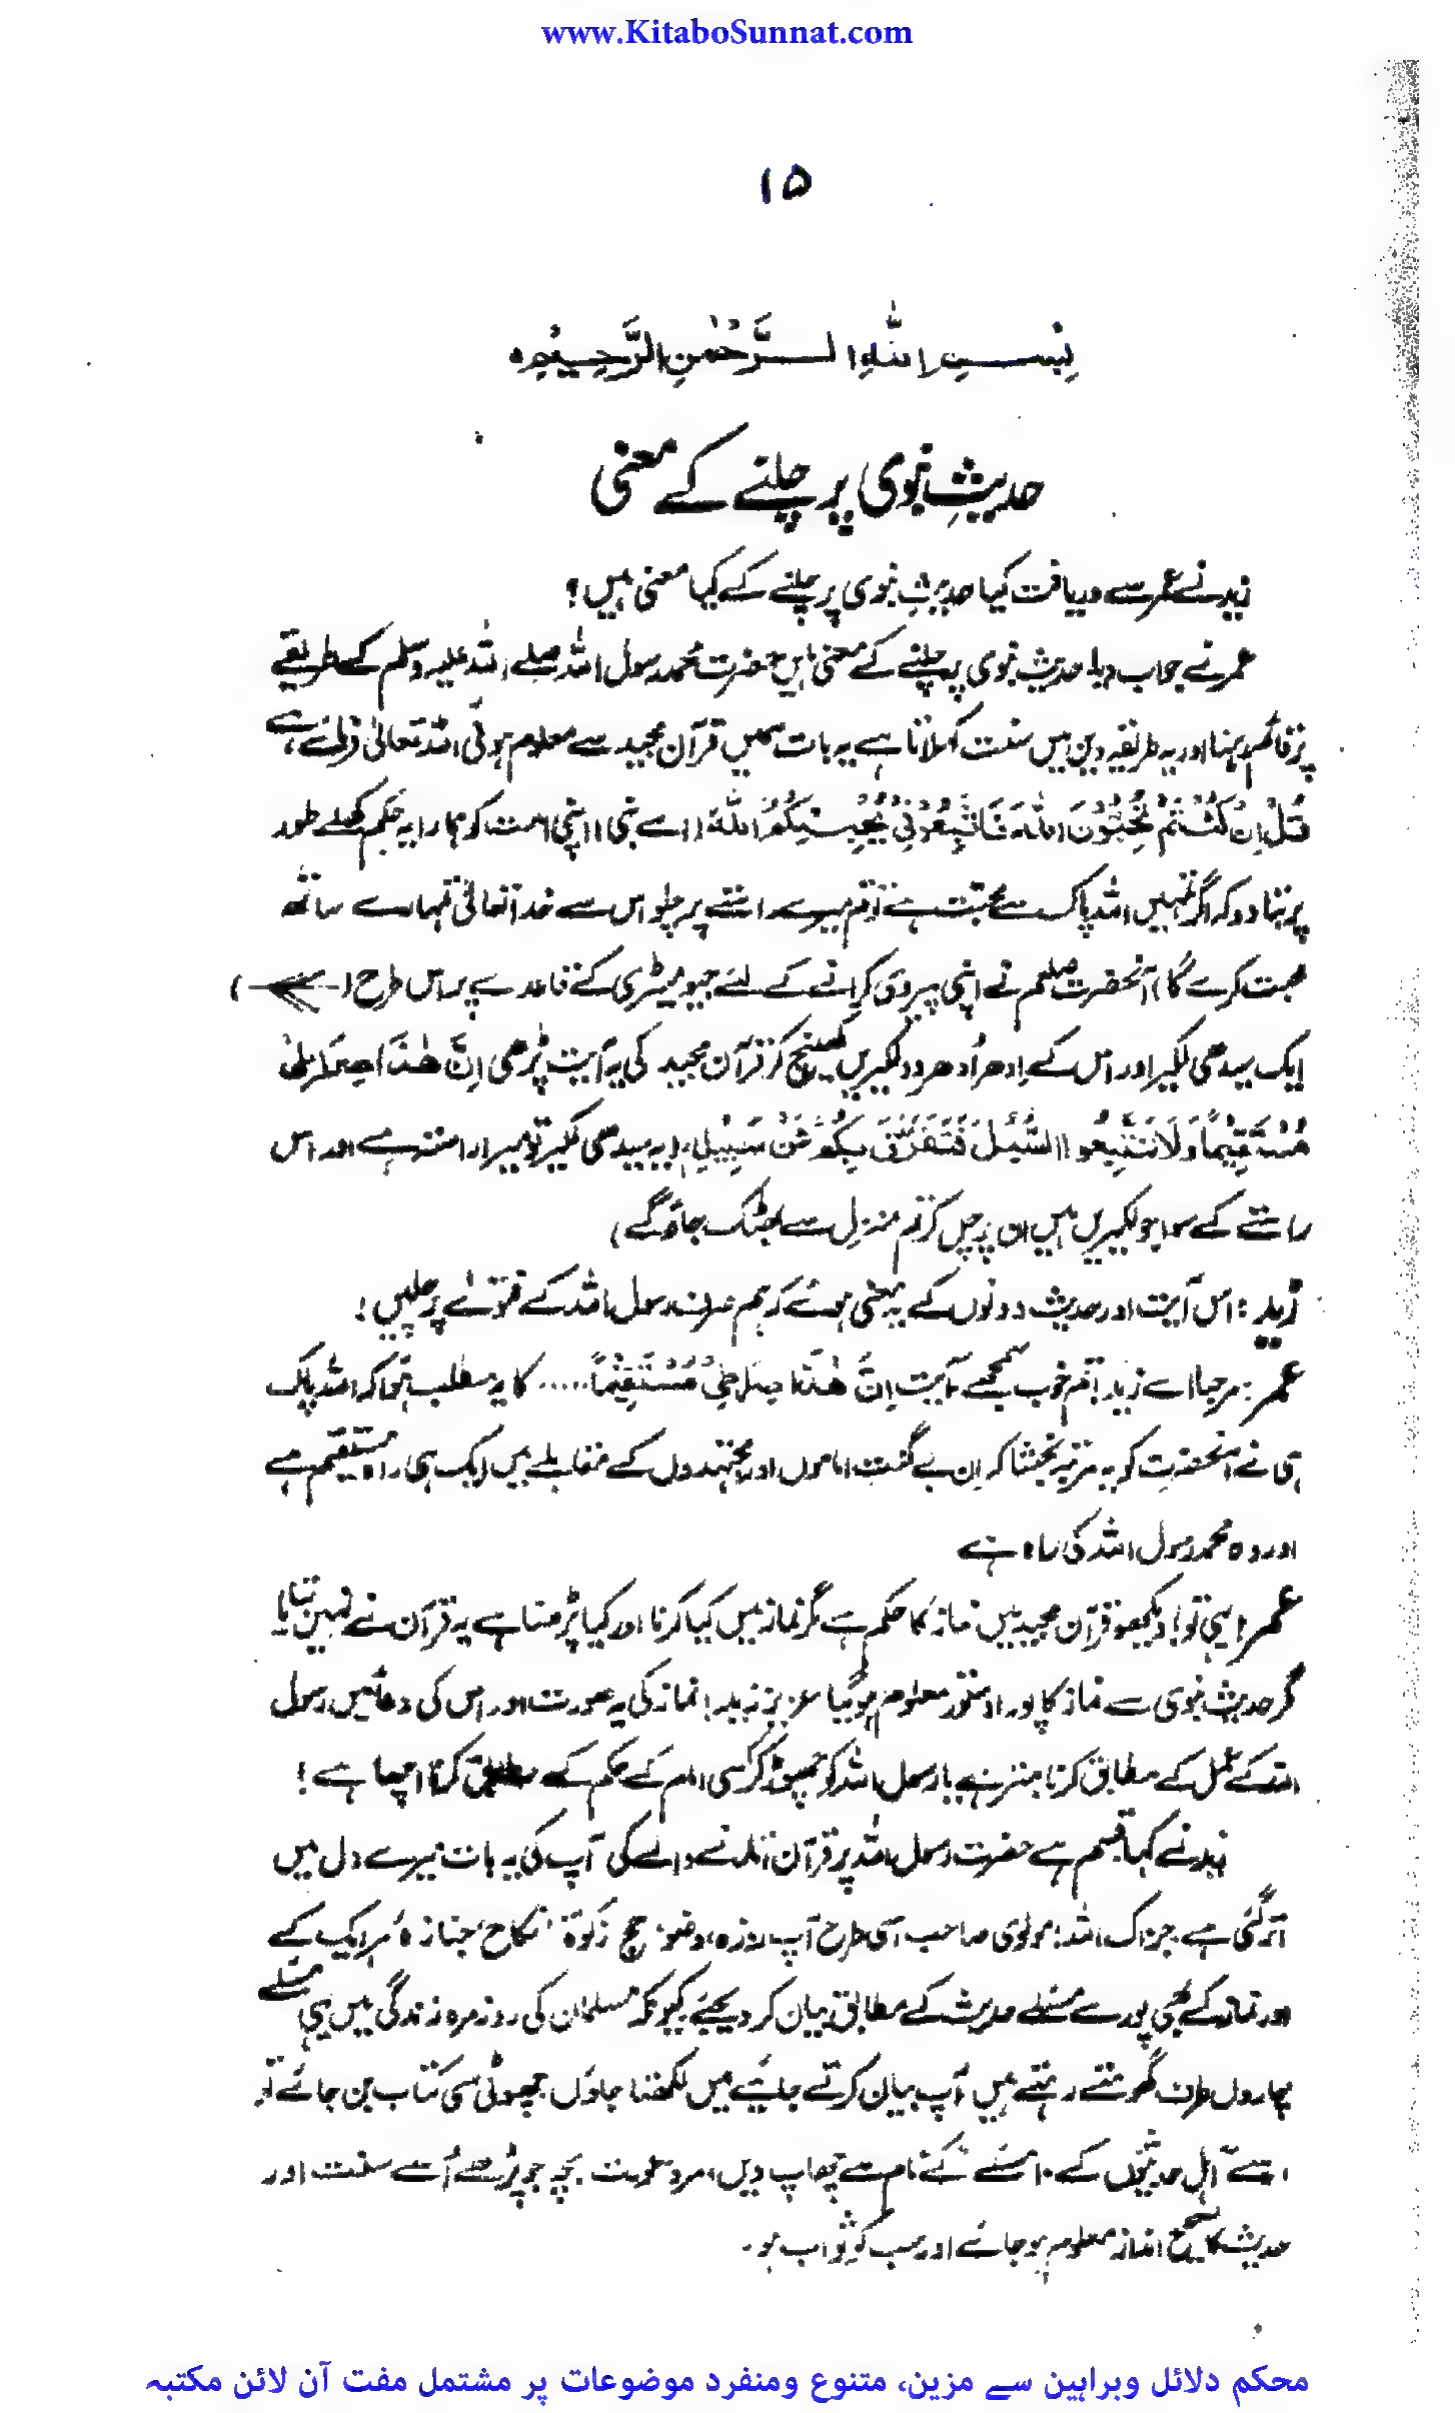 www.KitaboSunnat.com
۱۵
بِسْمِ اللّٰهِ الرَّحْمٰنِ الرَّحِيْمِ ہ
حدیثِ نبوی پر چلنے کے معنی
زید نے عمر سے دریافت کیا حدیثِ نبوی پر چلنے کے کیا معنی ہیں؟
عمر نے جواب دیا حدیث نبوی پر چلنے کے معنی ہیں حضرت محمد رسول اللہ صلے اللہ علیہ وسلم کے طریقے
پر قائم رہنا اور یہ طریقہ دین میں سنت کہلاتا ہے یہ بات ہمیں قرآن مجید سے معلوم ہوئی اللہ تعالیٰ فرماتے ہے،
قُلْ اِنْ كُنْتُمْ تُحِبُّوْنَ اللّٰهَ فَاتَّبِعُوْنِيْ يُحْبِبْكُمُ اللّٰهُ (اے نبی! اپنی امت کو ہمارا یہ حکم کھلے طور
پر بتا دو کہ اگر تمہیں اللہ پاک سے محبت ہے تو تم میرے راستے پر چلو اس سے خدا تعالیٰ تمہارے ساتھ
محبت کرے گا) آنحضرت صلعم نے اپنی پیروی کرانے کے لئے جیومیٹری کے قاعدے پر اس طرح ( )
ایک سیدھی لکیر اور اس کے اِدھر اُدھر دو لکیریں کھینچ کر قرآن مجید کی یہ آیت پڑھی اِنَّ هٰذَا صِرَاطِيْ
مُسْتَقِيْمًا وَلَا تَتَّبِعُوا السُّبُلَ فَتَفَرَّقَ بِكُمْ عَنْ سَبِيْلِهٖ (یہ سیدھی لکیر تو میرا راستہ ہے اور اس
راستے کے سوا جو لکیریں ہیں ان پر چل کر تم منزل سے بھٹک جاؤ گے)
زید: اس آیت اور حدیث دونوں کے یہ معنی ہوئے کہ ہم صرف رسول اللہ کے فتوے پر چلیں!
عمر: مرحبا اے زید! تم خوب سمجھے آیت اِنَّ هٰذَا صِرَاطِيْ مُسْتَقِيْمًا..... کا یہ مطلب ہوا کہ اللہ پاک
ہی نے آنحضرت کو یہ مرتبہ بخشا کہ ان بے گنت اماموں اور مجتہدوں کے مقابلے میں ایک ہی راہ مستقیم ہے
اور وہ محمد رسول اللہ کی راہ ہے
عمر: یہی تو! دیکھو قرآن مجید میں نماز کا حکم ہے مگر نماز میں کیا کرنا اور کیا پڑھنا ہے یہ قرآن نے نہیں بتایا
مگر حدیث نبوی سے نماز کا پورا دستور معلوم ہو گیا عزیز زید! نماز کی یہ صورت اور اس کی دعائیں رسول
اللہ کے عمل کے مطابق کرنا بہتر ہے یا رسول اللہ کو چھوڑ کر کسی امام کے حکم کے مطابق کرنا اچھا ہے!
زید نے کہا قسم ہے حضرت رسول اللہ پر قرآن اتارنے والے کی آپ کی یہ بات میرے دل میں
اتر گئی ہے جزاک اللہ! مولوی صاحب اسی طرح آپ روزہ، وضو، حج، زکوٰۃ، نکاح، جنازہ ہر ایک کے
اور نماز کے بھی پورے مسئلے حدیث کے مطابق بیان کر دیجئے کیونکہ مسلمان کی روزمرہ زندگی میں یہی مسئلے
چاروں طرف گھومتے رہتے ہیں آپ بیان کرتے جائیے میں لکھتا جاؤں چھوٹی سی کتاب بن جائے تو
اسے اہل حدیثوں کے ۱۰ مسئلے کے نام سے چھاپ دیں، مرد عورت بچہ جو پڑھے اُسے سنت اور
حدیث کا صحیح انداز معلوم ہو جائے اور سب کو ثواب ہو۔
محکم دلائل وبراہین سے مزین، متنوع ومنفرد موضوعات پر مشتمل مفت آن لائن مکتبہ